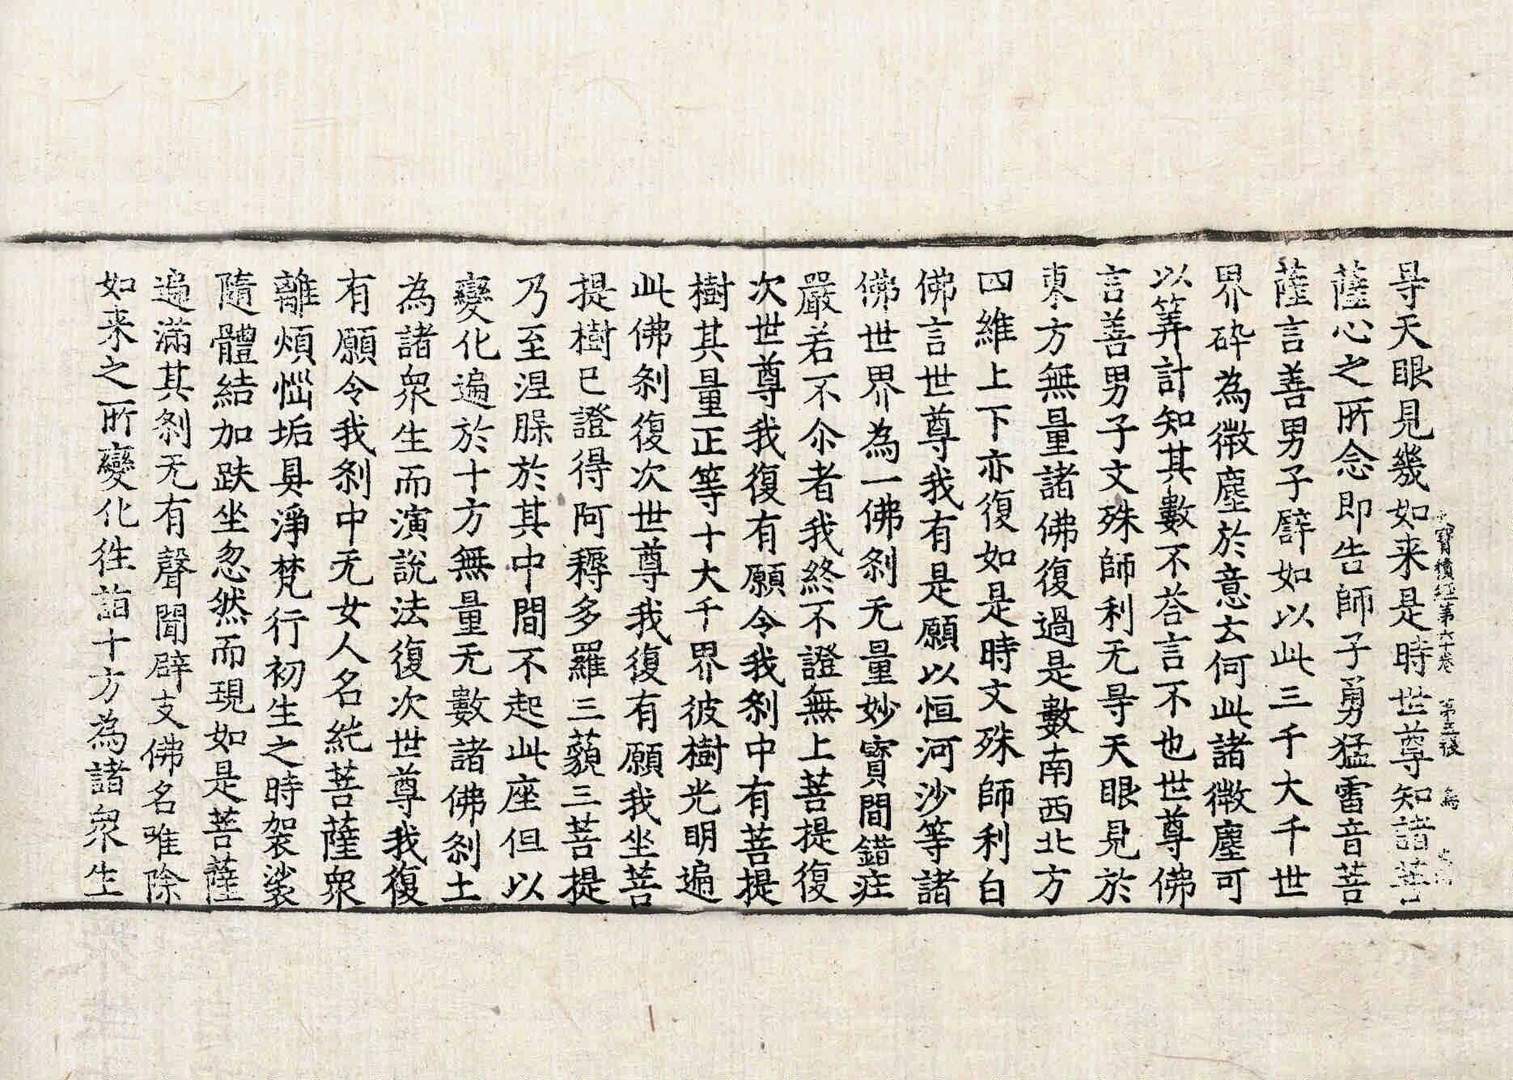 㝵天眼見幾如来是時世尊知諸菩
薩心之所念即告師子勇猛雷音菩
薩言善男子譬如以此三千大千世
界碎為微塵於意云何此諸微塵可
以筭計知其數不荅言不也世尊佛
言善男子文殊師利无㝵天眼見於
東方無量諸佛復過是數南西北方
四維上下亦復如是時文殊師利白
佛言世尊我有是願以恒河沙等諸
佛世界為一佛刹无量妙寶間錯疘
嚴若不尒者我終不證無上菩提復
次世尊我復有願令我刹中有菩提
樹其量正等十大千界彼樹光明遍
此佛刹復次世尊我復有願我坐菩
提樹已證得阿耨多羅三藐三菩提
乃至涅槃於其中間不起此座但以
變化遍於十方無量无數諸佛刹土
為諸衆生而演說法復次世尊我復
有願令我刹中无女人名純菩薩衆
離煩惱垢具淨梵行初生之時袈裟
隨體結加趺坐忽然而現如是菩薩
遍滿其刹无有聲聞辟支佛名唯除
如来之所變化徃詣十方為諸衆生
寶積經第六十卷 第五張 鳥